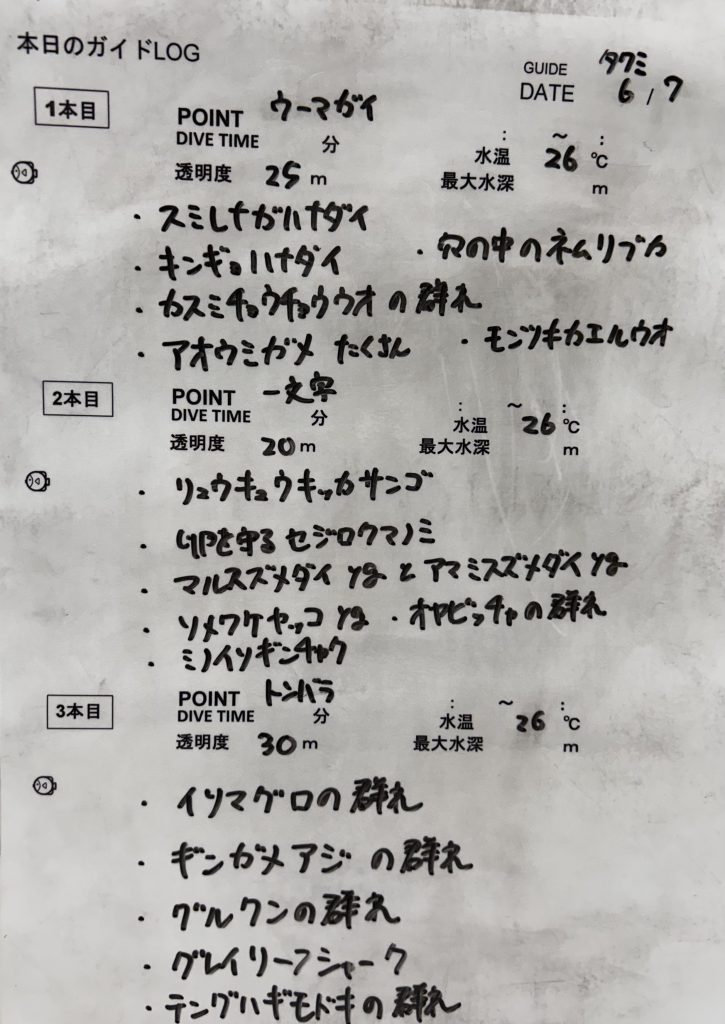 本日のガイドLOG
GUIDE タクミ
DATE 6 / 7
1本目 POINT ウーマガイ
DIVE TIME 分 : ～ :
透明度 25 m 水温 26 ℃
最大水深 m
・スミレナガハナダイ
・キンギョハナダイ ・穴の中のネムリブカ
・カスミチョウチョウウオの群れ
・アオウミガメ たくさん ・モンツキカエルウオ
2本目 POINT 一文字
DIVE TIME 分 : ～ :
透明度 20 m 水温 26 ℃
最大水深 m
・リュウキュウキッカサンゴ
・卵を守るセジロクマノミ
・マルスズメダイ yg と アマミスズメダイ yg
・ソメワケヤッコ yg ・オヤビッチャの群れ
・ミノイソギンチャク
3本目 POINT トンバラ
DIVE TIME 分 : ～ :
透明度 30 m 水温 26 ℃
最大水深 m
・イソマグロの群れ
・ギンガメアジの群れ
・グルクンの群れ
・グレイリーフシャーク
・テングハギモドキの群れ